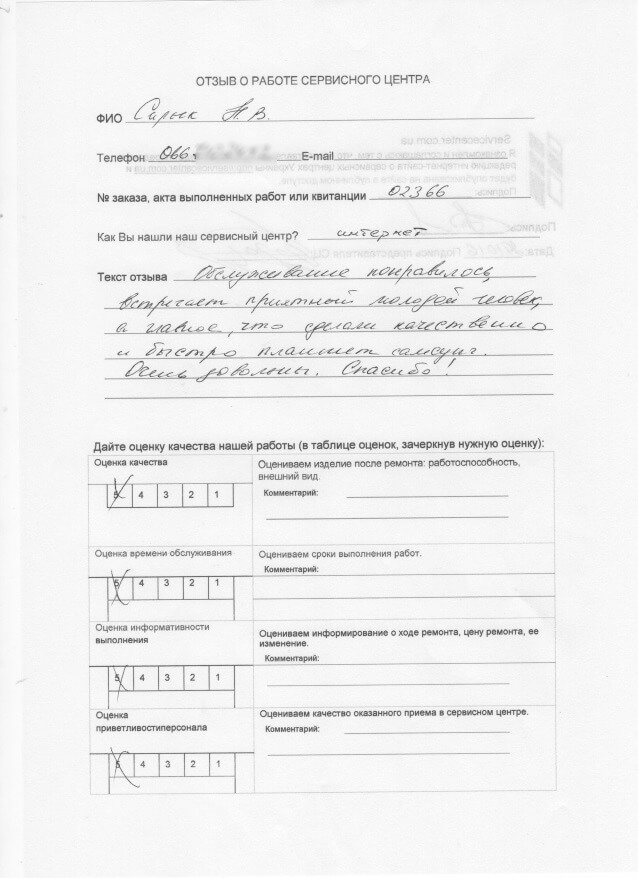 ОТЗЫВ О РАБОТЕ СЕРВИСНОГО ЦЕНТРА
ФИО Сирык Н. В.
Телефон 066 E-mail
№ заказа, акта выполненных работ или квитанции 02366
Как Вы нашли наш сервисный центр? интернет
Текст отзыва Обслуживание понравилось,
встречает приятный молодой человек,
а главное, что сделали качественно
и быстро планшет самсунг.
Очень довольны. Спасибо!
Дайте оценку качества нашей работы (в таблице оценок, зачеркнув нужную оценку):
Оценка качества
5 4 3 2 1
Оцениваем изделие после ремонта: работоспособность,
внешний вид.
Комментарий:
Оценка времени обслуживания
5 4 3 2 1
Оцениваем сроки выполнения работ.
Комментарий:
Оценка информативности
выполнения
5 4 3 2 1
Оцениваем информирование о ходе ремонта, цену ремонта, ее
изменение.
Комментарий:
Оценка
приветливостиперсонала
5 4 3 2 1
Оцениваем качество оказанного приема в сервисном центре.
Комментарий: